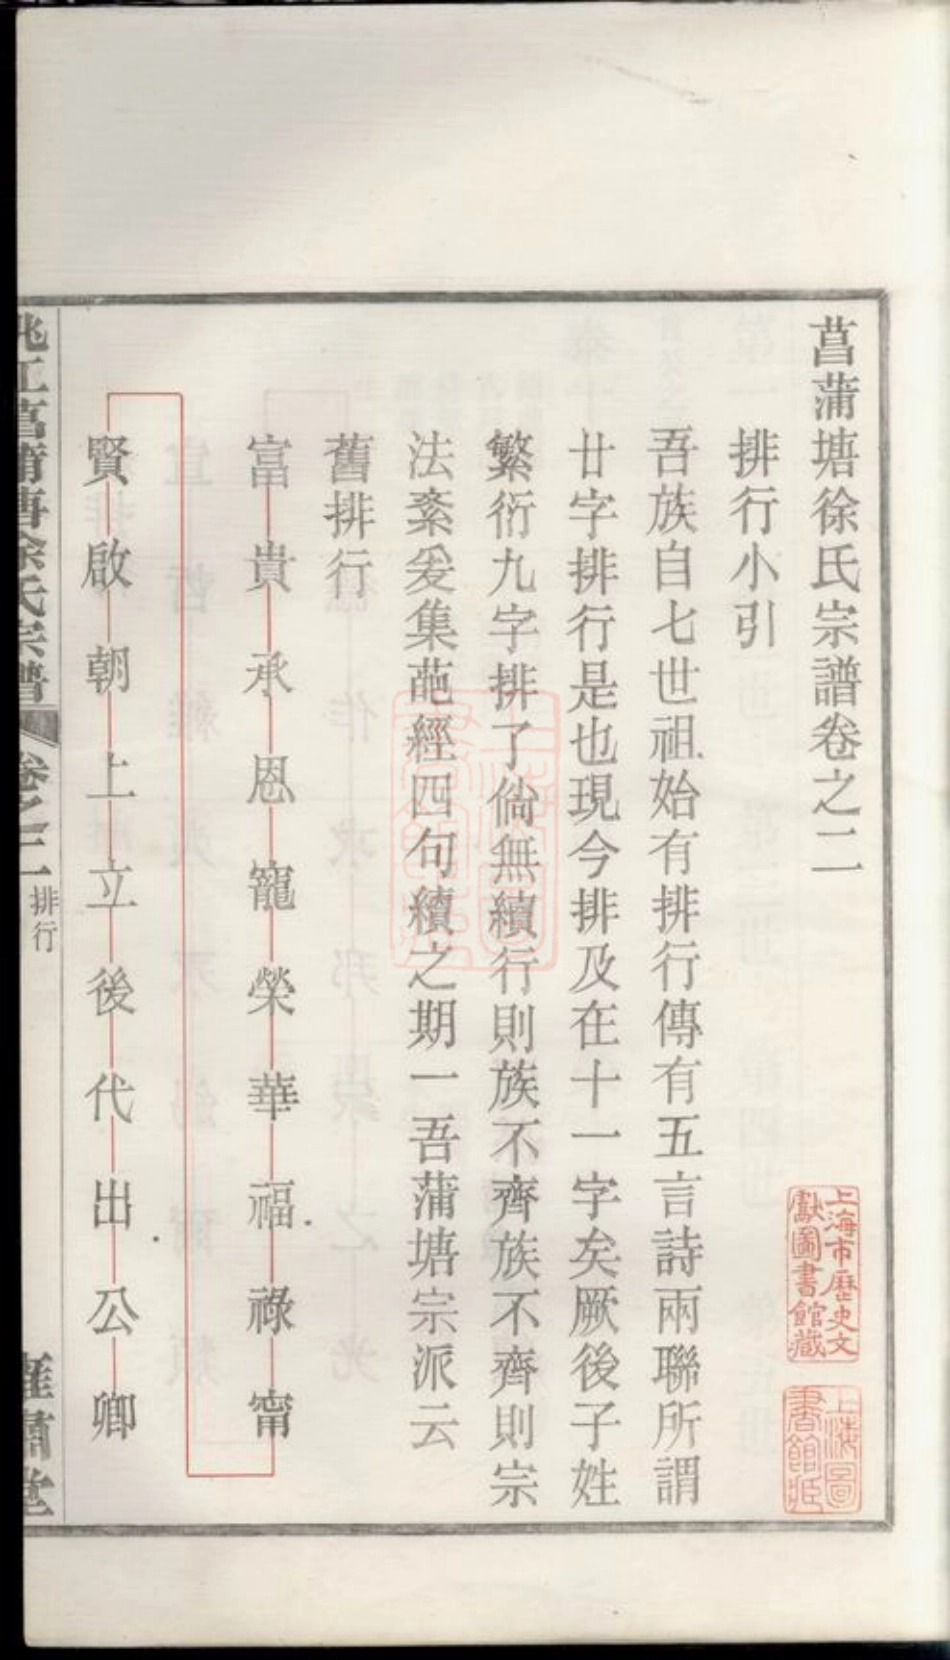 菖蒲塘徐氏宗譜卷之二
排行小引
吾族自七世祖始有排行傳有五言詩兩聯所謂
廿字排行是也現今排及在十一字矣厥後子姓
繁衍九字排了倘無續行則族不齊族不齊則宗
法紊爰集葩經四句續之期一吾蒲塘宗派云
舊排行
富貴承恩寵榮華福祿甯
賢啟朝上立後代出公卿
姚江菖蒲塘徐氏宗譜
卷之二
排行
上海市歷史文
獻圖書館藏
上海圖
書館藏